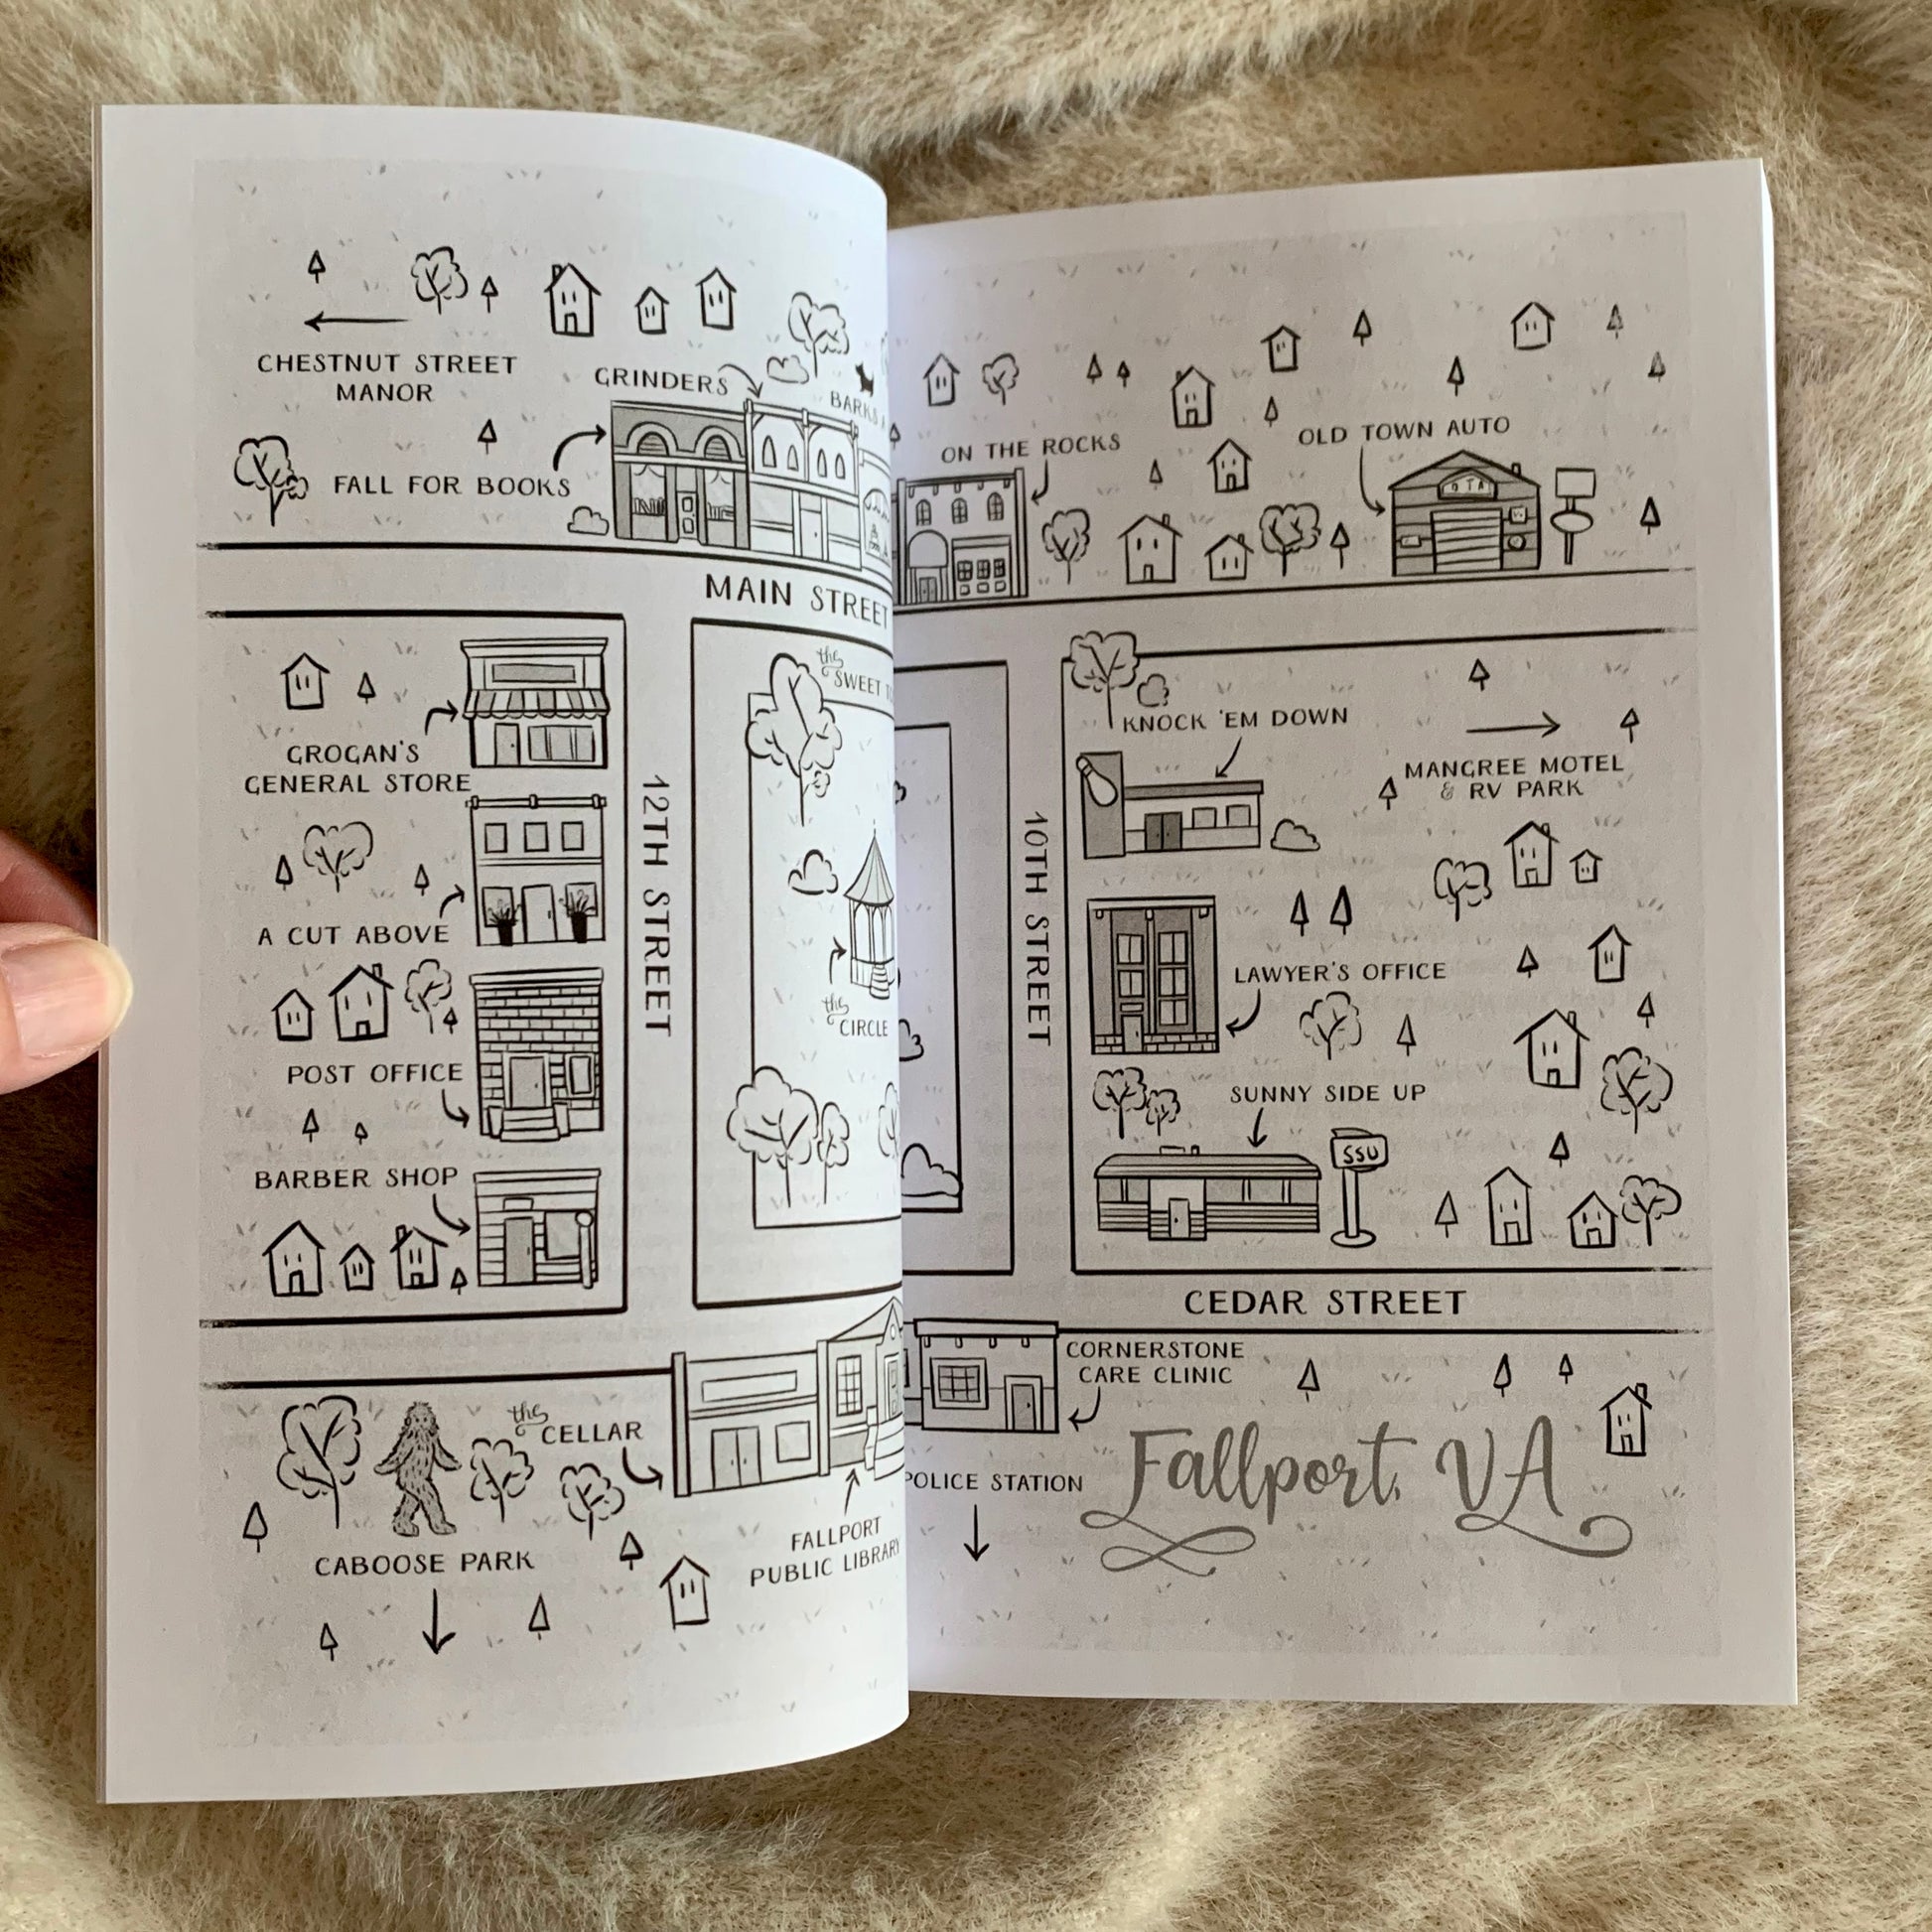 CHESTNUT STREET
MANOR
GRINDERS
BARKS
FALL FOR BOOKS
MAIN STREET
GROGAN'S
GENERAL STORE
A CUT ABOVE
POST OFFICE
BARBER SHOP
12TH STREET
the
SWEET
the
CIRCLE
the
CELLAR
CABOOSE PARK
FALLPORT
PUBLIC LIBRARY
ON THE ROCKS
OLD TOWN AUTO
OTA
KNOCK 'EM DOWN
MANGREE MOTEL
& RV PARK
10TH STREET
LAWYER'S OFFICE
SUNNY SIDE UP
SSU
CEDAR STREET
CORNERSTONE
CARE CLINIC
POLICE STATION
Fallport, VA